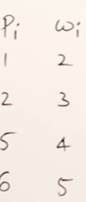 Pi wi
1 2
2 3
5 4
6 5